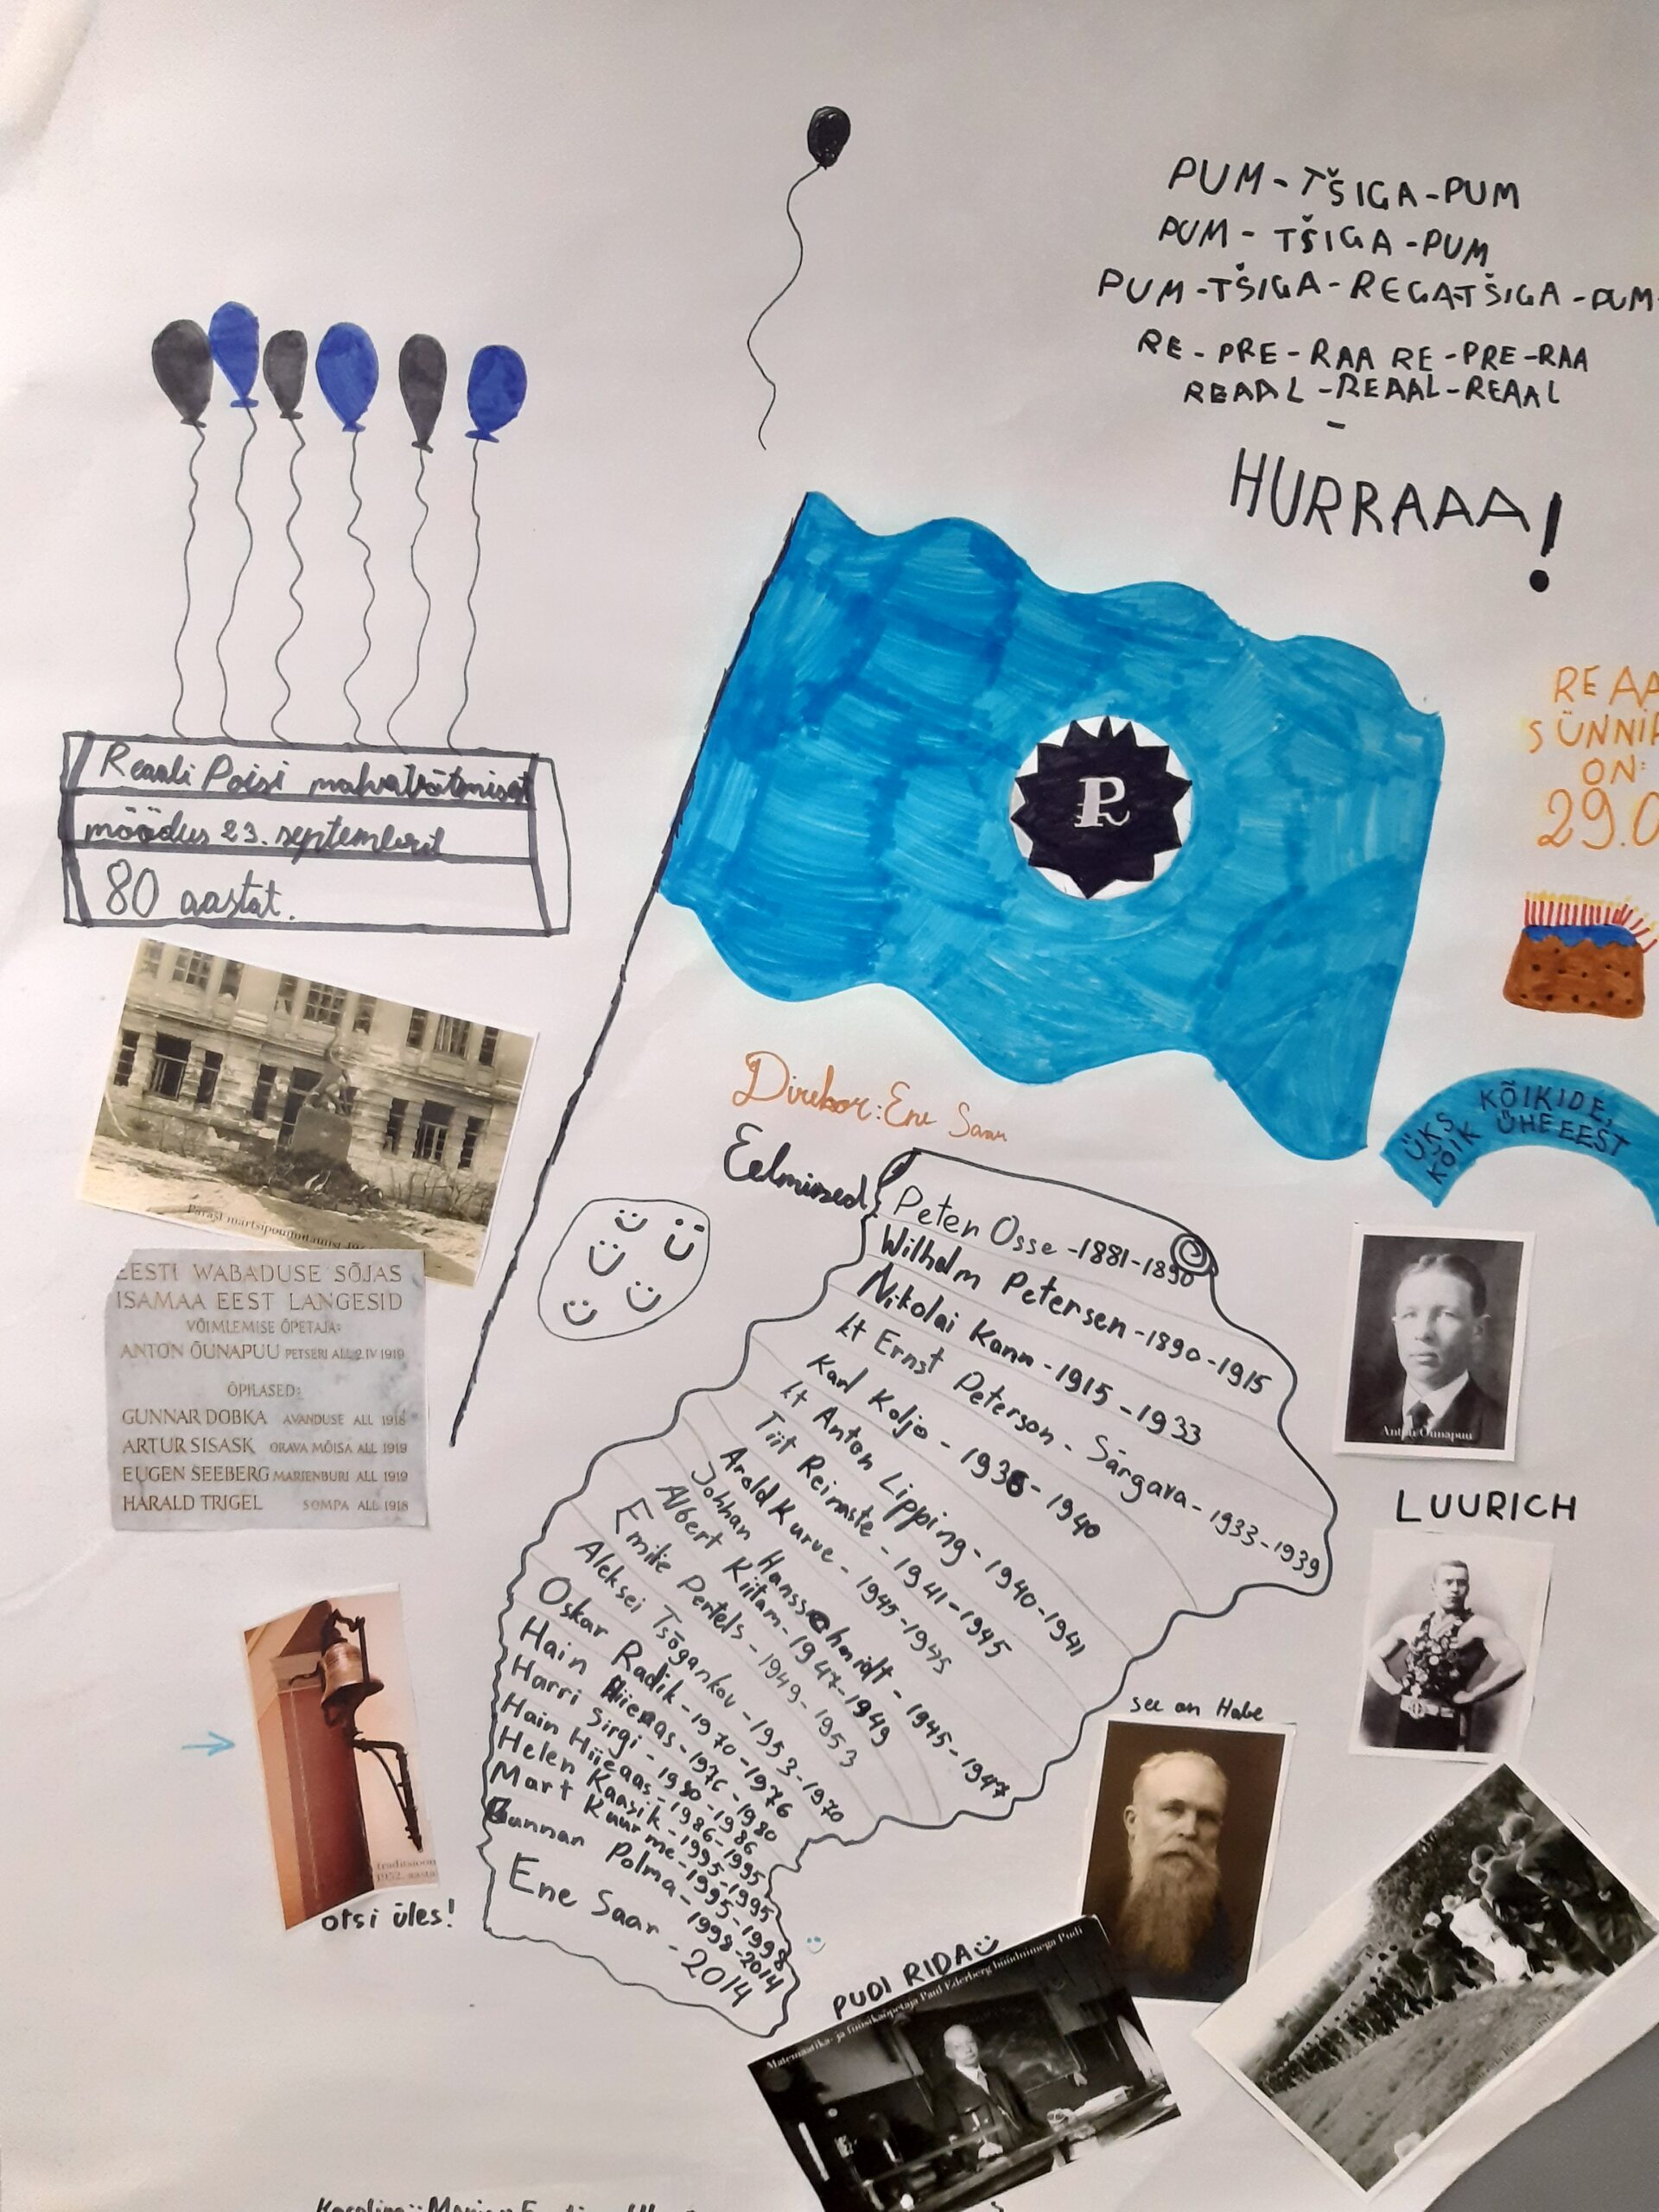 PUM-TŠIGA-PUM
PUM-TŠIGA-PUM
PUM-TŠIGA-REGATŠIGA-PUM-
RE-PRE-RAA RE-PRE-RAA
REAAL-REAAL-REAAL
-
HURRAAA!
Reaali Poisi mahavõtmisest
möödus 23. septembril
80 aastat.
PR
REAA
SÜNNIP
ON:
29.0
ÜKS KÕIKIDE,
KÕIK ÜHE EEST
Direktor: Ene Saar
Eelmised:
Peter Osse -1881-1890
Wilhelm Petersen -1890-1915
Nikolai Kann - 1915 - 1933
kt Ernst Peterson - Särgava - 1933-1939
Karl Koljo - 1936 - 1940
kt Anton Lipping - 1940-1941
Tiit Reimaste - 1941-1945
Arold Kurve - 1945-1945
Johhan Hansschmidt - 1945-1947
Albert Kiitam - 1947-1949
Emilie Pertels - 1949-1953
Aleksei Tsõgankov - 1953-1970
Oskar Radik - 1970-1976
Hain Hiieaas - 1976-1980
Harri Sirgi - 1980-1986
Hain Hiieaas - 1986-1995
Helen Kaasik - 1995-1995
Mart Kuurme - 1995-1998
Gunnar Polma - 1998-2014
Ene Saar - 2014
Pärast märtsipommitamist
EESTI WABADUSE SÕJAS
ISAMAA EEST LANGESID
VÕIMLEMISE ÕPETAJA:
ANTON ÕUNAPUU PETSERI ALL 2.IV 1919
ÕPILASED:
GUNNAR DOBKA AVANDUSE ALL 1918
ARTUR SISASK ORAVA MÕISA ALL 1919
EUGEN SEEBERG MARIENBURI ALL 1919
HARALD TRIGEL SOMPA ALL 1918
traditsioon
1952. aasta
otsi üles!
Anton Õunapuu
LUURICH
see on Habe
PUDI RIDA
Matemaatika- ja füüsikaõpetaja Paul Ederberg hüüdnimega Pudi